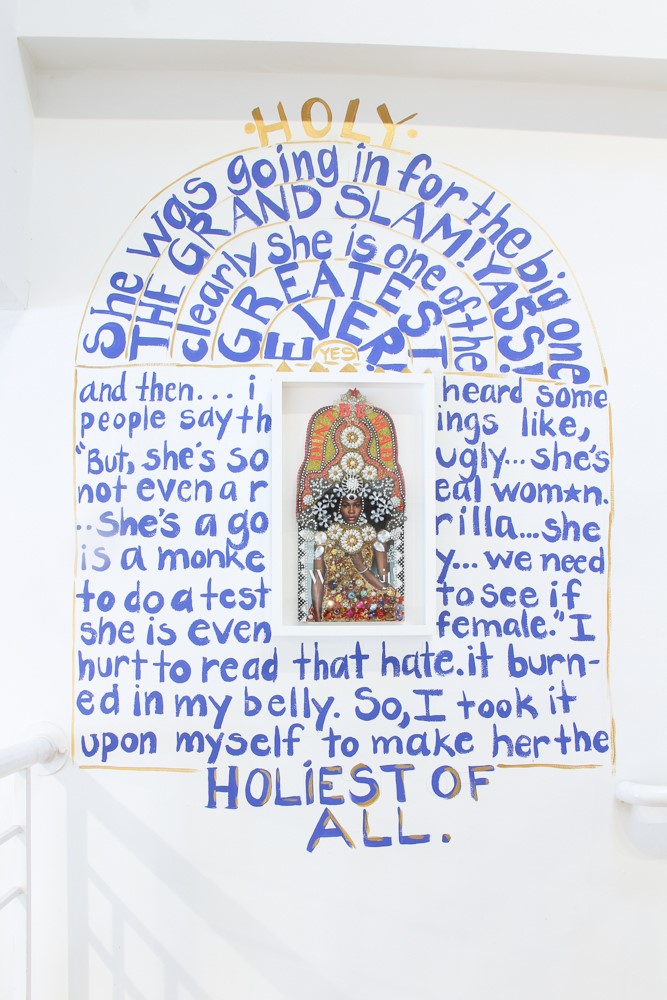 ·HOLY·
She was going in for the big one
THE GRAND SLAM! YASS!
clearly she is one of the
GREATEST
EVER!
YES
and then... i heard some
people say things like,
"But, she's so ugly... she's
not even a real wom★n.
..She's a gorilla... she
is a monkey... we need
to do a test to see if
she is even female." I
hurt to read that hate. it burn-
ed in my belly. So, I took it
upon myself to make her the
HOLiEST OF
ALL.